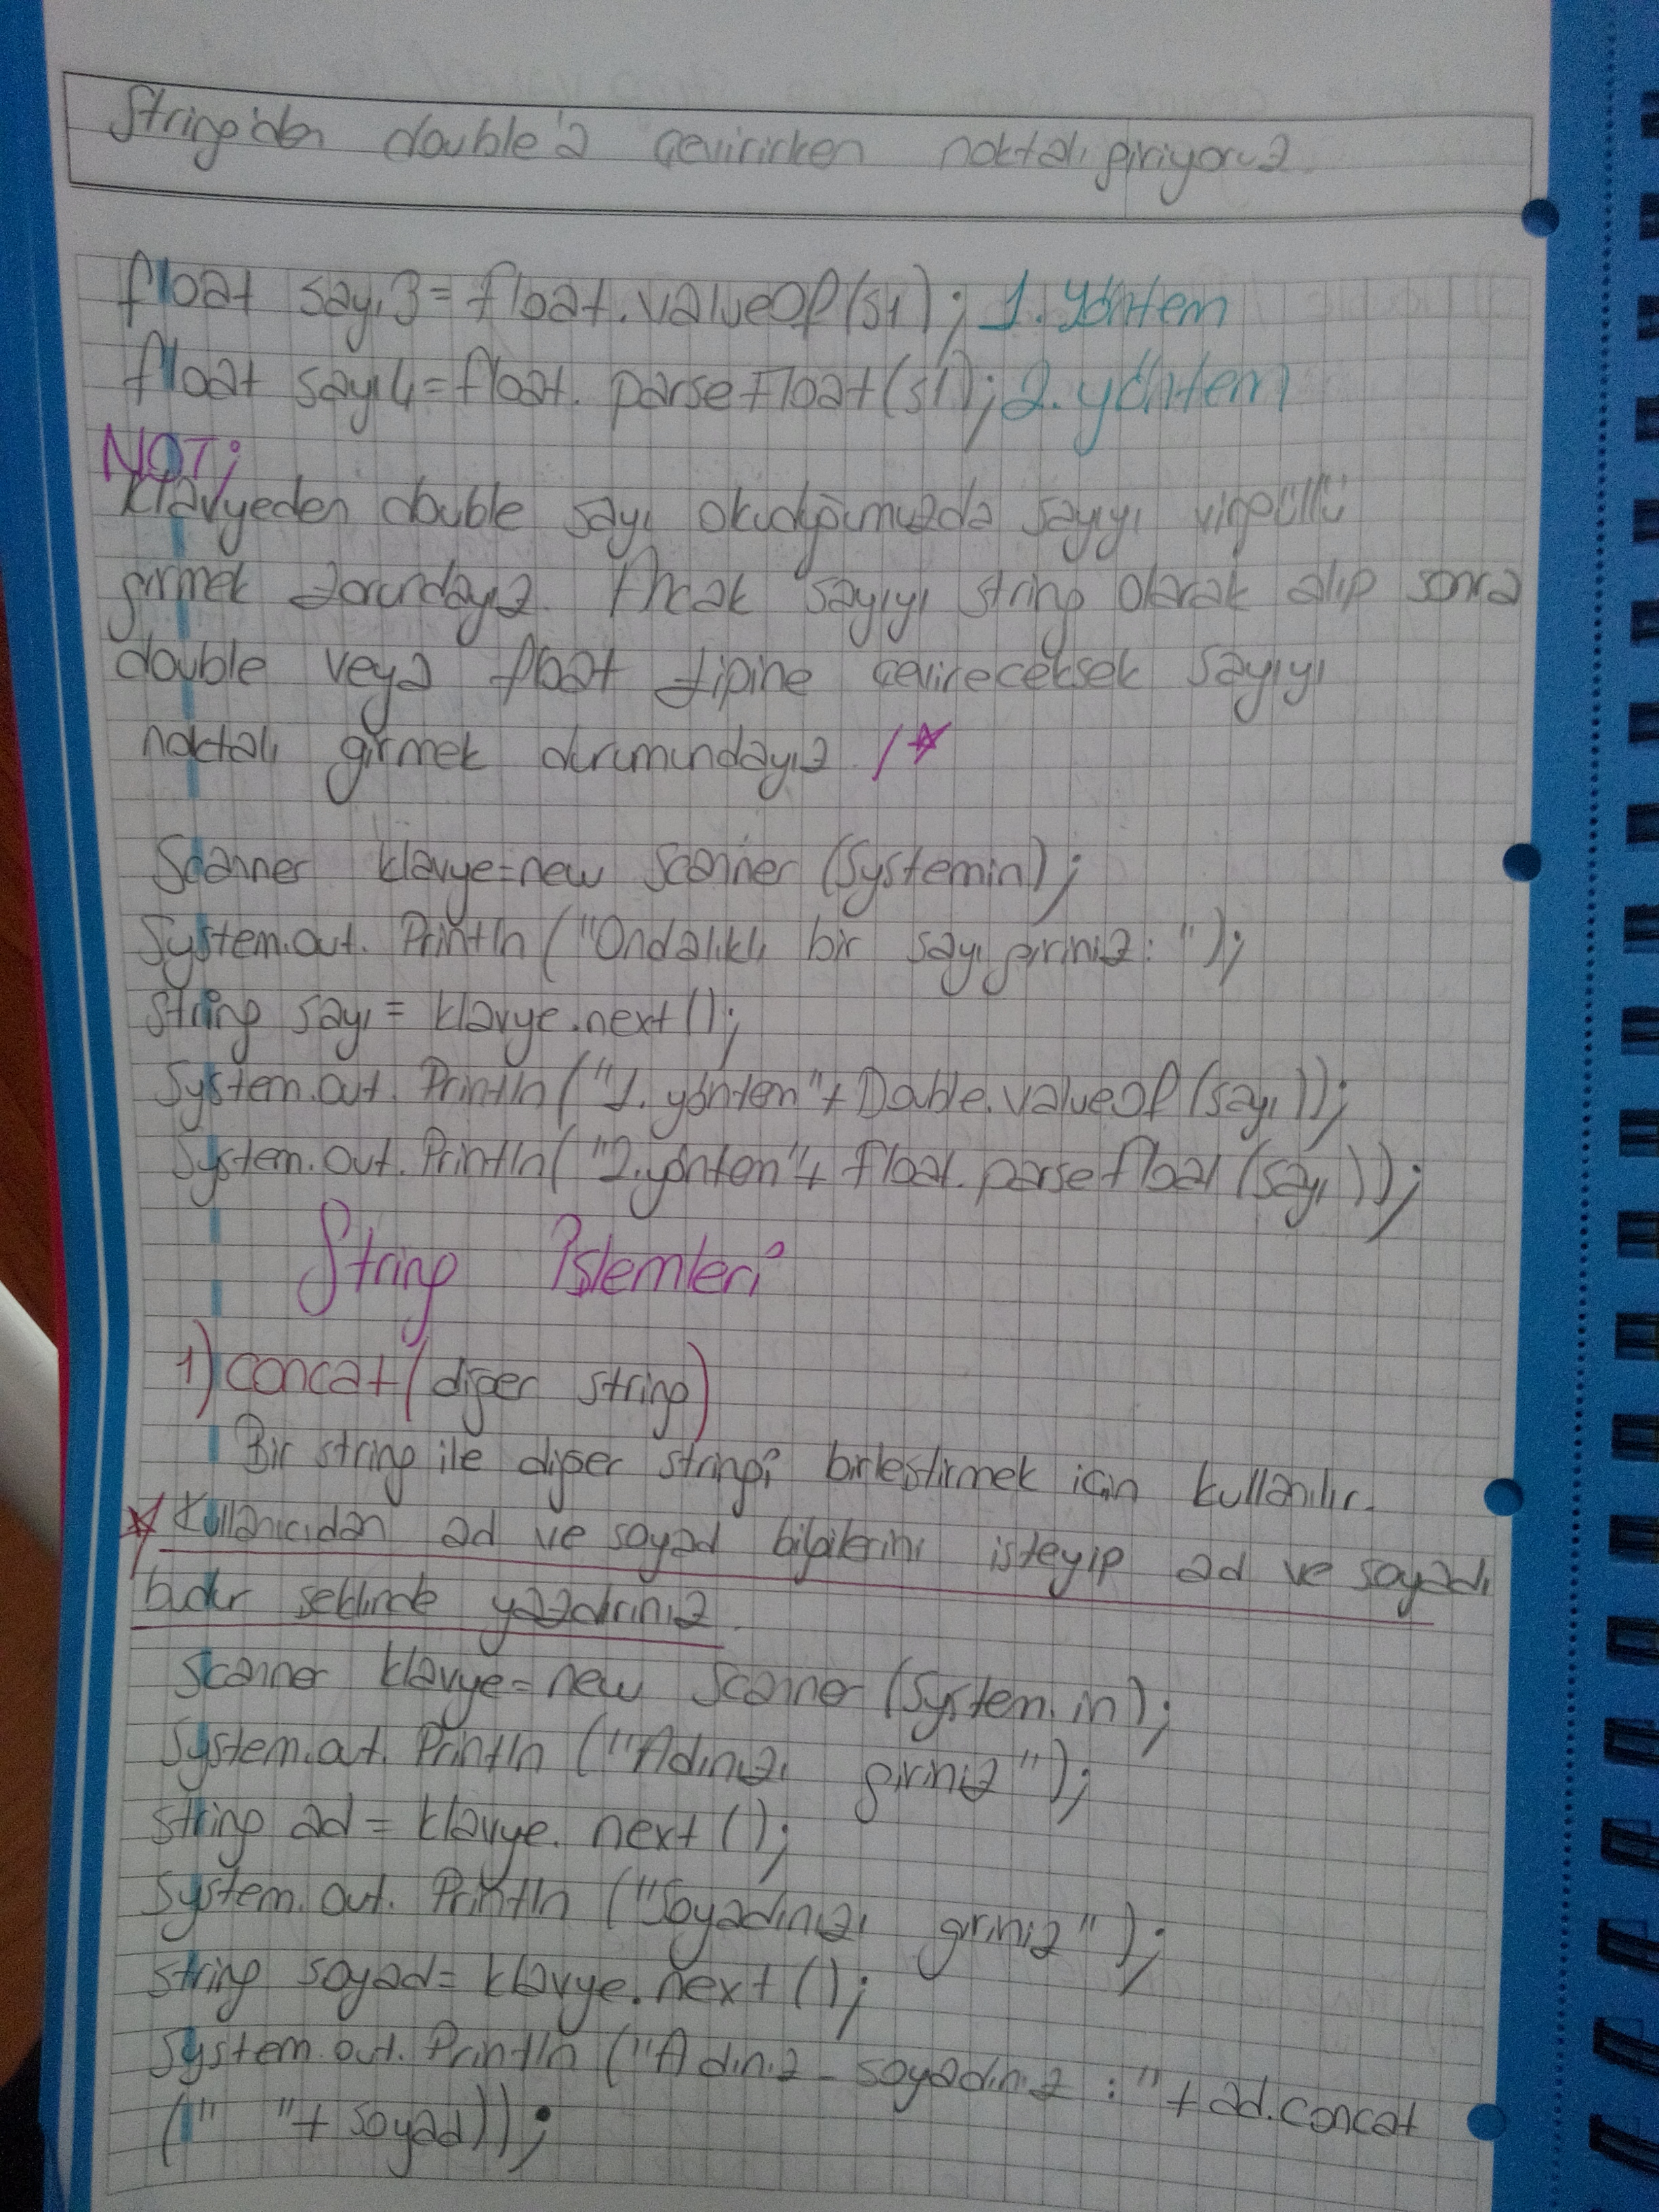 String'den double'a çevirirken noktalı giriyoruz
float sayı3=float.valueOf(s1); 1. yöntem
float sayı4=float. parsefloat(s1); 2. yöntem
NOT;
klavyeden double sayı okuduğumuzda sayıyı virgüllü
girmek zorundayız. Ancak sayıyı string olarak alıp sonra
double veya float tipine çevireceksek sayıyı
noktalı girmek durumundayız /*
Scanner klavye=new Scanner (Systemin);
System.out. Println ("Ondalıklı bir sayı giriniz: ");
string sayı = klavye.next();
System.out. Println ("1. yöntem"+Double.valueOf(sayı));
System.out.Println("2.yöntem"+ float.parsefloat(sayı));
String İşlemleri
1) concat(diğer string)
Bir string ile diğer stringi birleştirmek için kullanılır.
Kullanıcıdan ad ve soyad bilgilerini isteyip ad ve soyadı
budur seklinde yazdırınız.
scanner klavye=new Scanner (System.in);
System.out. Println ("Adınızı giriniz");
string ad = klavye. next ();
System.out. Println ("Soyadınızı giriniz");
string soyad= klavye.next ();
System.out. Println ("Adınız - soyadınız : "+ ad.concat
(" "+ soyad));